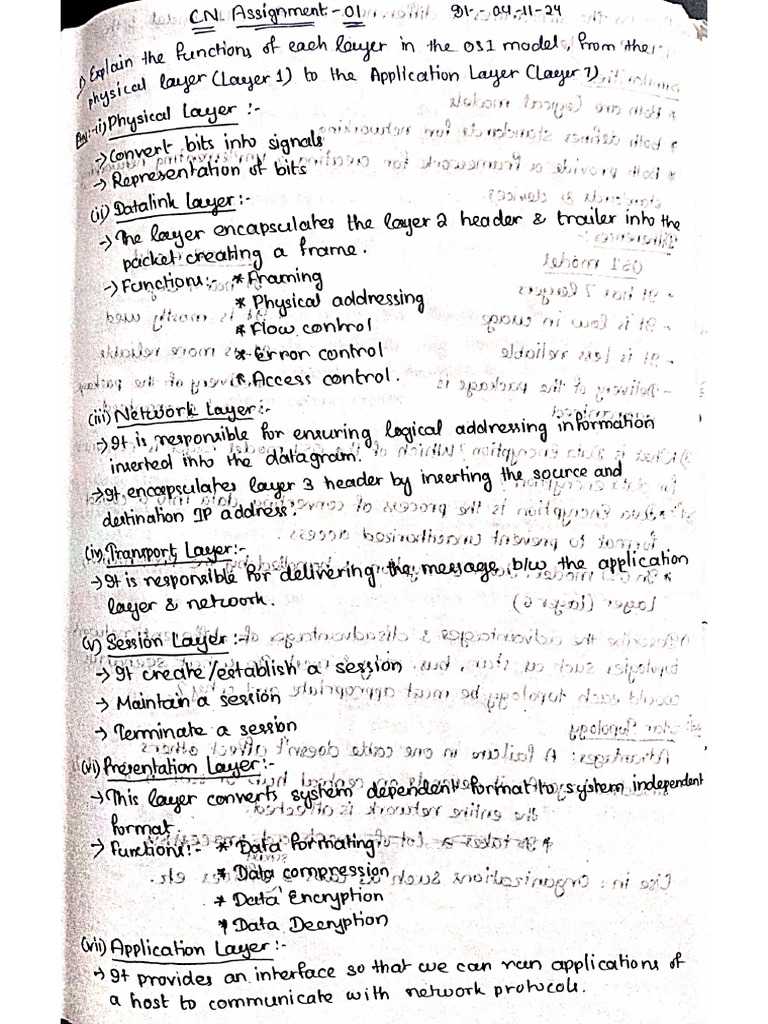 CN Assignment-01 Dt:-04-11-24
1) Explain the functions of each layer in the OSI model, from the
physical layer (Layer 1) to the Application Layer (Layer 7)
(i) Physical Layer :-
-> Convert bits into signals
-> Representation of bits
(ii) Datalink Layer:-
-> The layer encapsulates the layer 2 header & trailer into the
packet creating a frame.
-> Functions:- * Framing
* Physical addressing
* Flow control
* Error control
* Access control.
(iii) Network Layer:-
-> It is responsible for ensuring logical addressing information
inserted into the datagram.
-> It encapsulates layer 3 header by inserting the source and
destination IP address.
(iv) Transport Layer:-
-> It is responsible for delivering the message b/w the application
layer & network.
(v) Session Layer :-
-> It create/establish a session
-> Maintain a session
-> Terminate a session
(vi) Presentation Layer:-
-> This layer converts system dependent format to system independent
format.
-> Functions:- * Data formating
* Data compression
* Data Encryption
* Data Decryption
(vii) Application Layer :-
-> It provides an interface so that we can run applications of
a host to communicate with network protocols.